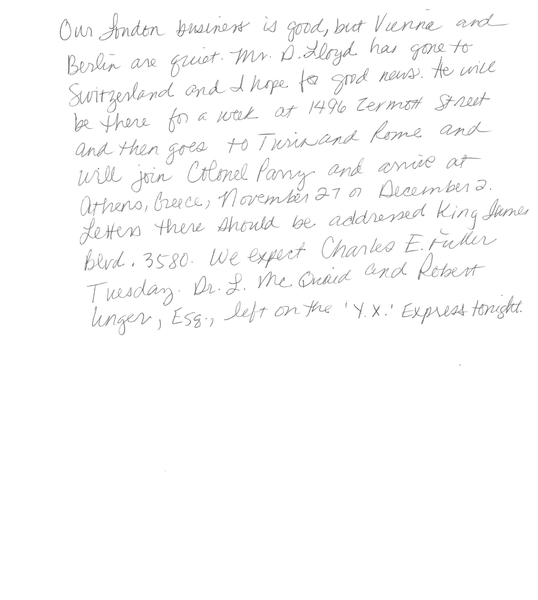 Our London business is good, but Vienna and
Berlin are quiet. Mr. D. Lloyd has gone to
Switzerland and I hope for good news. He will
be there for a week at 1496 Zermott Street
and then goes to Turin and Rome and
will join Colonel Parry and arrive at
Athens, Greece, November 27 or December 2.
Letters there should be addressed King James
Blvd. 3580. We expect Charles E. Fuller
Tuesday. Dr. L. McQuaid and Robert
Unger, Esq., left on the 'Y.X.' Express tonight.